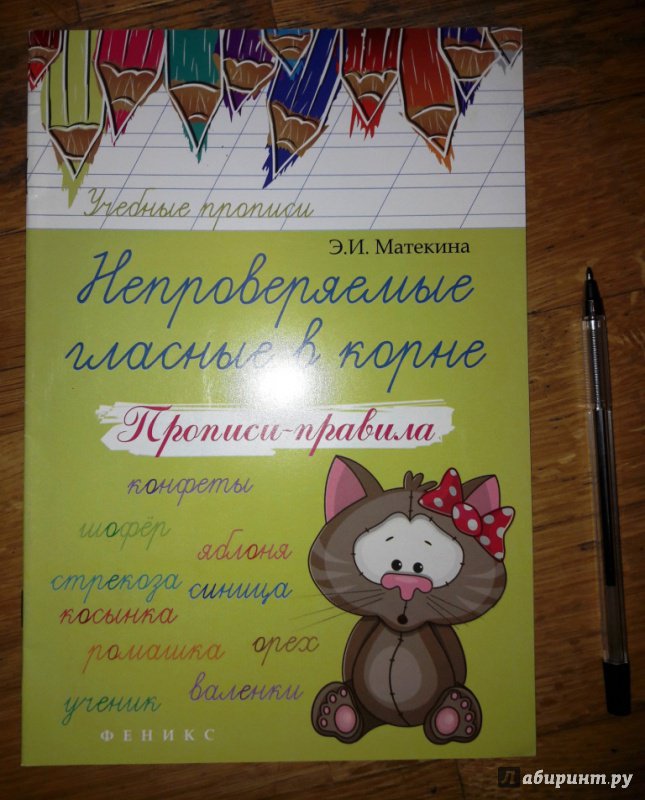 Учебные прописи
Э.И. Матекина
Непроверяемые
гласные в корне
Прописи-правила
конфеты
шофёр
яблоня
стрекоза
синица
косынка
ромашка
орех
ученик
валенки
ФЕНИКС
Лабиринт.ру